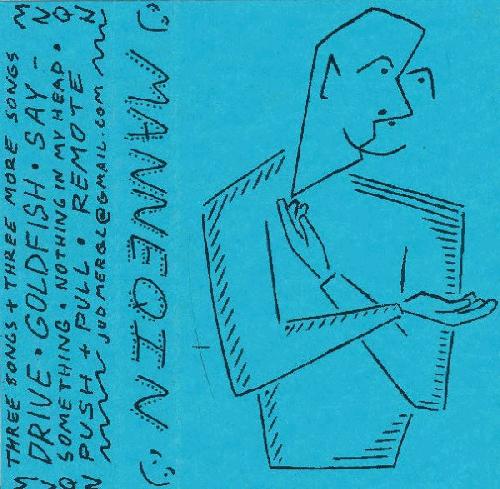 M THREE SONGS + THREE MORE SONGS M
N DRIVE • GOLDFISH • SAY – N
Q SOMETHING • NOTHING IN MY HEAD • Q
N PUSH + PULL • REMOTE N
JUDMERGL@GMAIL.COM
MANNEQIN